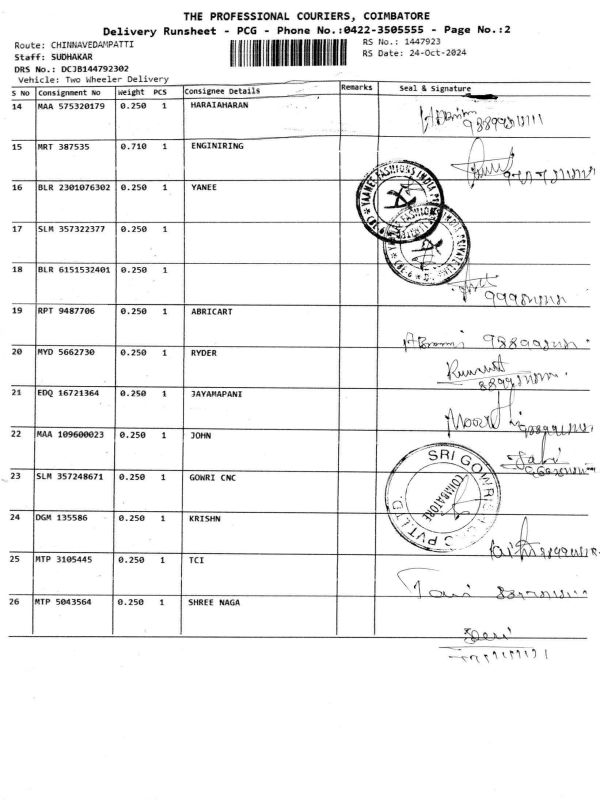 THE PROFESSIONAL COURIERS, COIMBATORE
Delivery Runsheet - PCG - Phone No.:0422-3505555 - Page No.:2
Route: CHINNAVEDAMPATTI
RS No.: 1447923
Staff: SUDHAKAR
RS Date: 24-Oct-2024
DRS No.: DCJB144792302
Vehicle: Two Wheeler Delivery
S No Consignment No Weight PCS Consignee Details Remarks Seal & Signature
14 MAA 575320179 0.250 1 HARAIAHARAN
15 MRT 387535 0.710 1 ENGINIRING
16 BLR 2301076302 0.250 1 YANEE
17 SLM 357322377 0.250 1
18 BLR 6151532401 0.250 1
19 RPT 9487706 0.250 1 ABRICART
20 MYD 5662730 0.250 1 RYDER
21 EDQ 16721364 0.250 1 JAYAMAPANI
22 MAA 109600023 0.250 1 JOHN
23 SLM 357248671 0.250 1 GOWRI CNC
SRI GOWRISH
COIMBATORE
PVT.LTD.
24 DGM 135586 0.250 1 KRISHN
25 MTP 3105445 0.250 1 TCI
26 MTP 5043564 0.250 1 SHREE NAGA